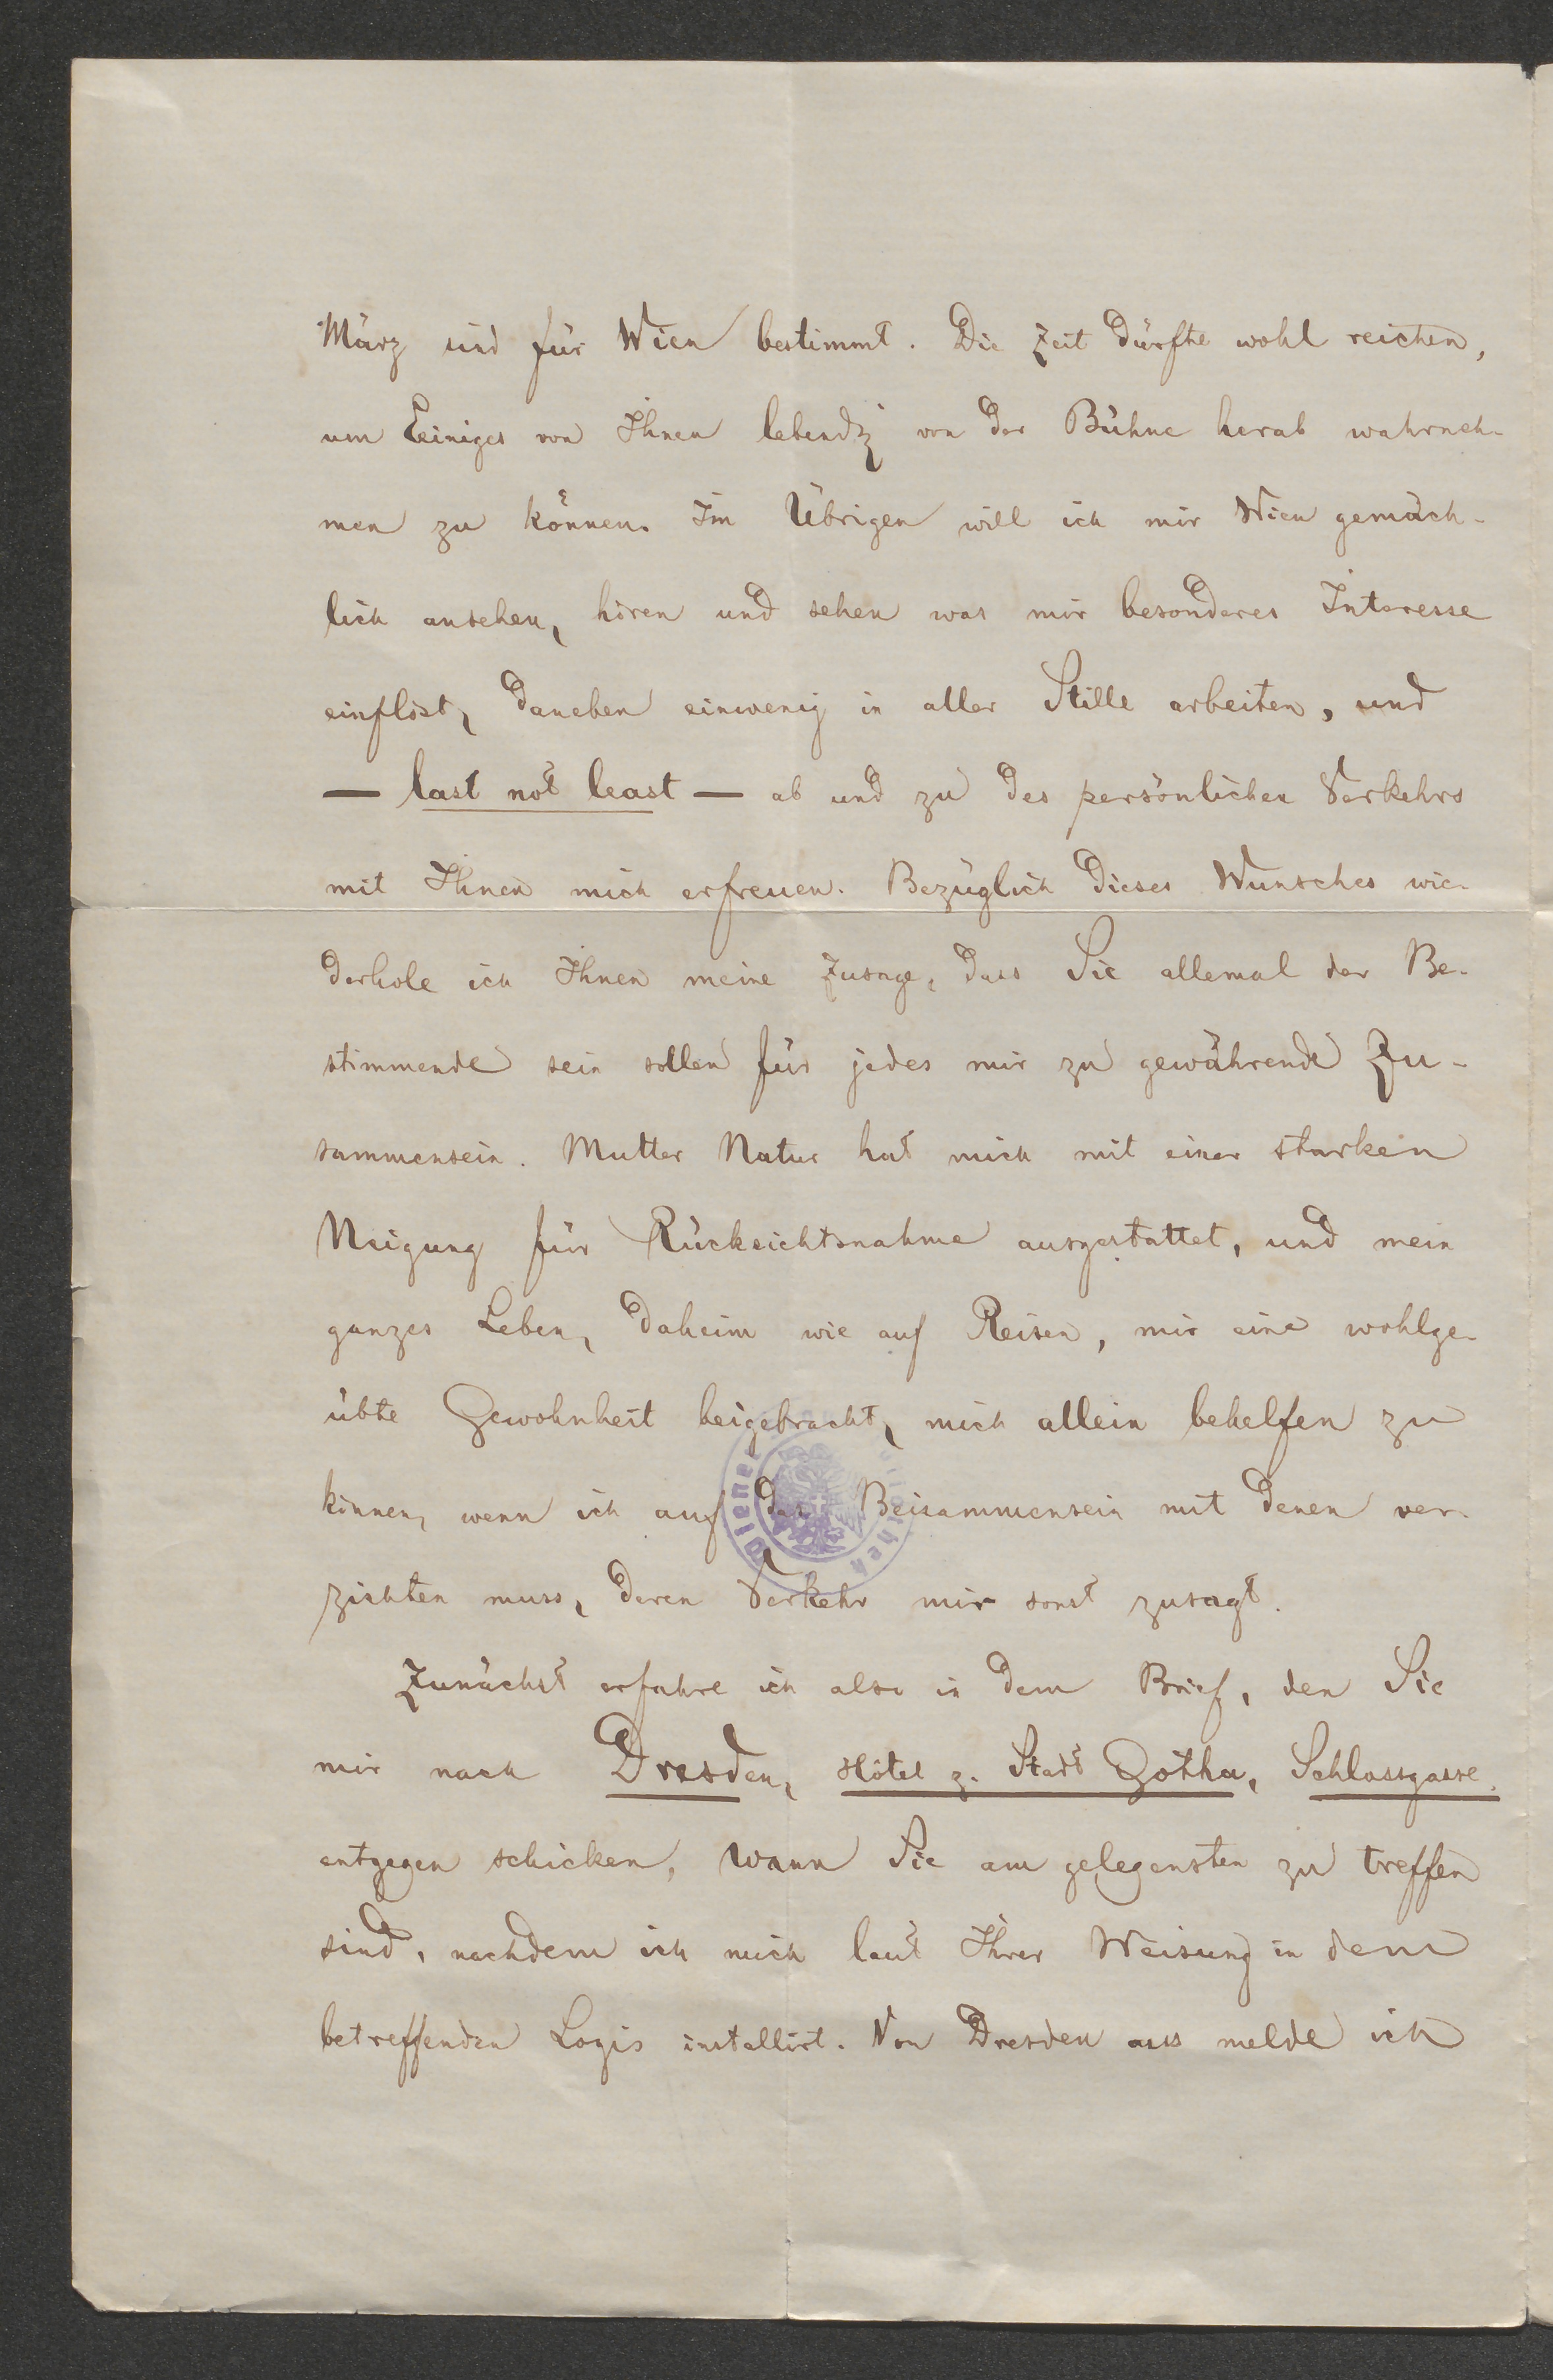 März sind für Wien bestimmt. Die Zeit dürfte wohl reichen,
um Einiges von Ihnen lebendig von der Bühne herab wahrneh-
men zu können. Im Übrigen will ich mir Wien gemäch-
lich ansehen, hören und sehen was mir besonderes Interesse
einflöst, daneben einwenig in aller Stille arbeiten, und
— last not least — ab und zu des persönlichen Verkehrs
mit Ihnen mich erfreuen. Bezüglich dieses Wunsches wie-
derhole ich Ihnen meine Zusage, dass Sie allemal der Be-
stimmende sein sollen für jedes mir zu gewährende Zu-
sammensein. Mutter Natur hat mich mit einer starken
Neigung für Rücksichtsnahme ausgestattet, und mein
ganzes Leben, daheim wie auf Reisen, mir eine wohlge-
übte Gewohnheit beigebracht, mich allein behelfen zu
können, wenn ich auf das Beisammensein mit denen ver-
zichten muss, deren Verkehr mir sonst zusagt.
Zunächst erfahre ich also in dem Brief, den Sie
mir nach Dresden, Hôtel z. Stadt Gotha, Schlossgasse
entgegen schicken, wann Sie am gelegensten zu treffen
sind, nachdem ich mich laut Ihrer Weisung in dem
betreffenden Logis installirt. Von Dresden aus melde ich